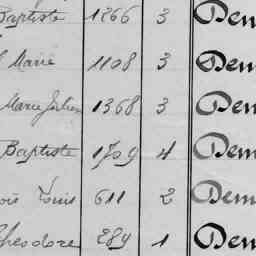 Baptiste 1266 3 Dem
Marie 1108 3 Dem
Marie Julien 1368 3 Dem
Baptiste 1709 4 Dem
Louis 611 2 Dem
Theodore 289 1 Dem